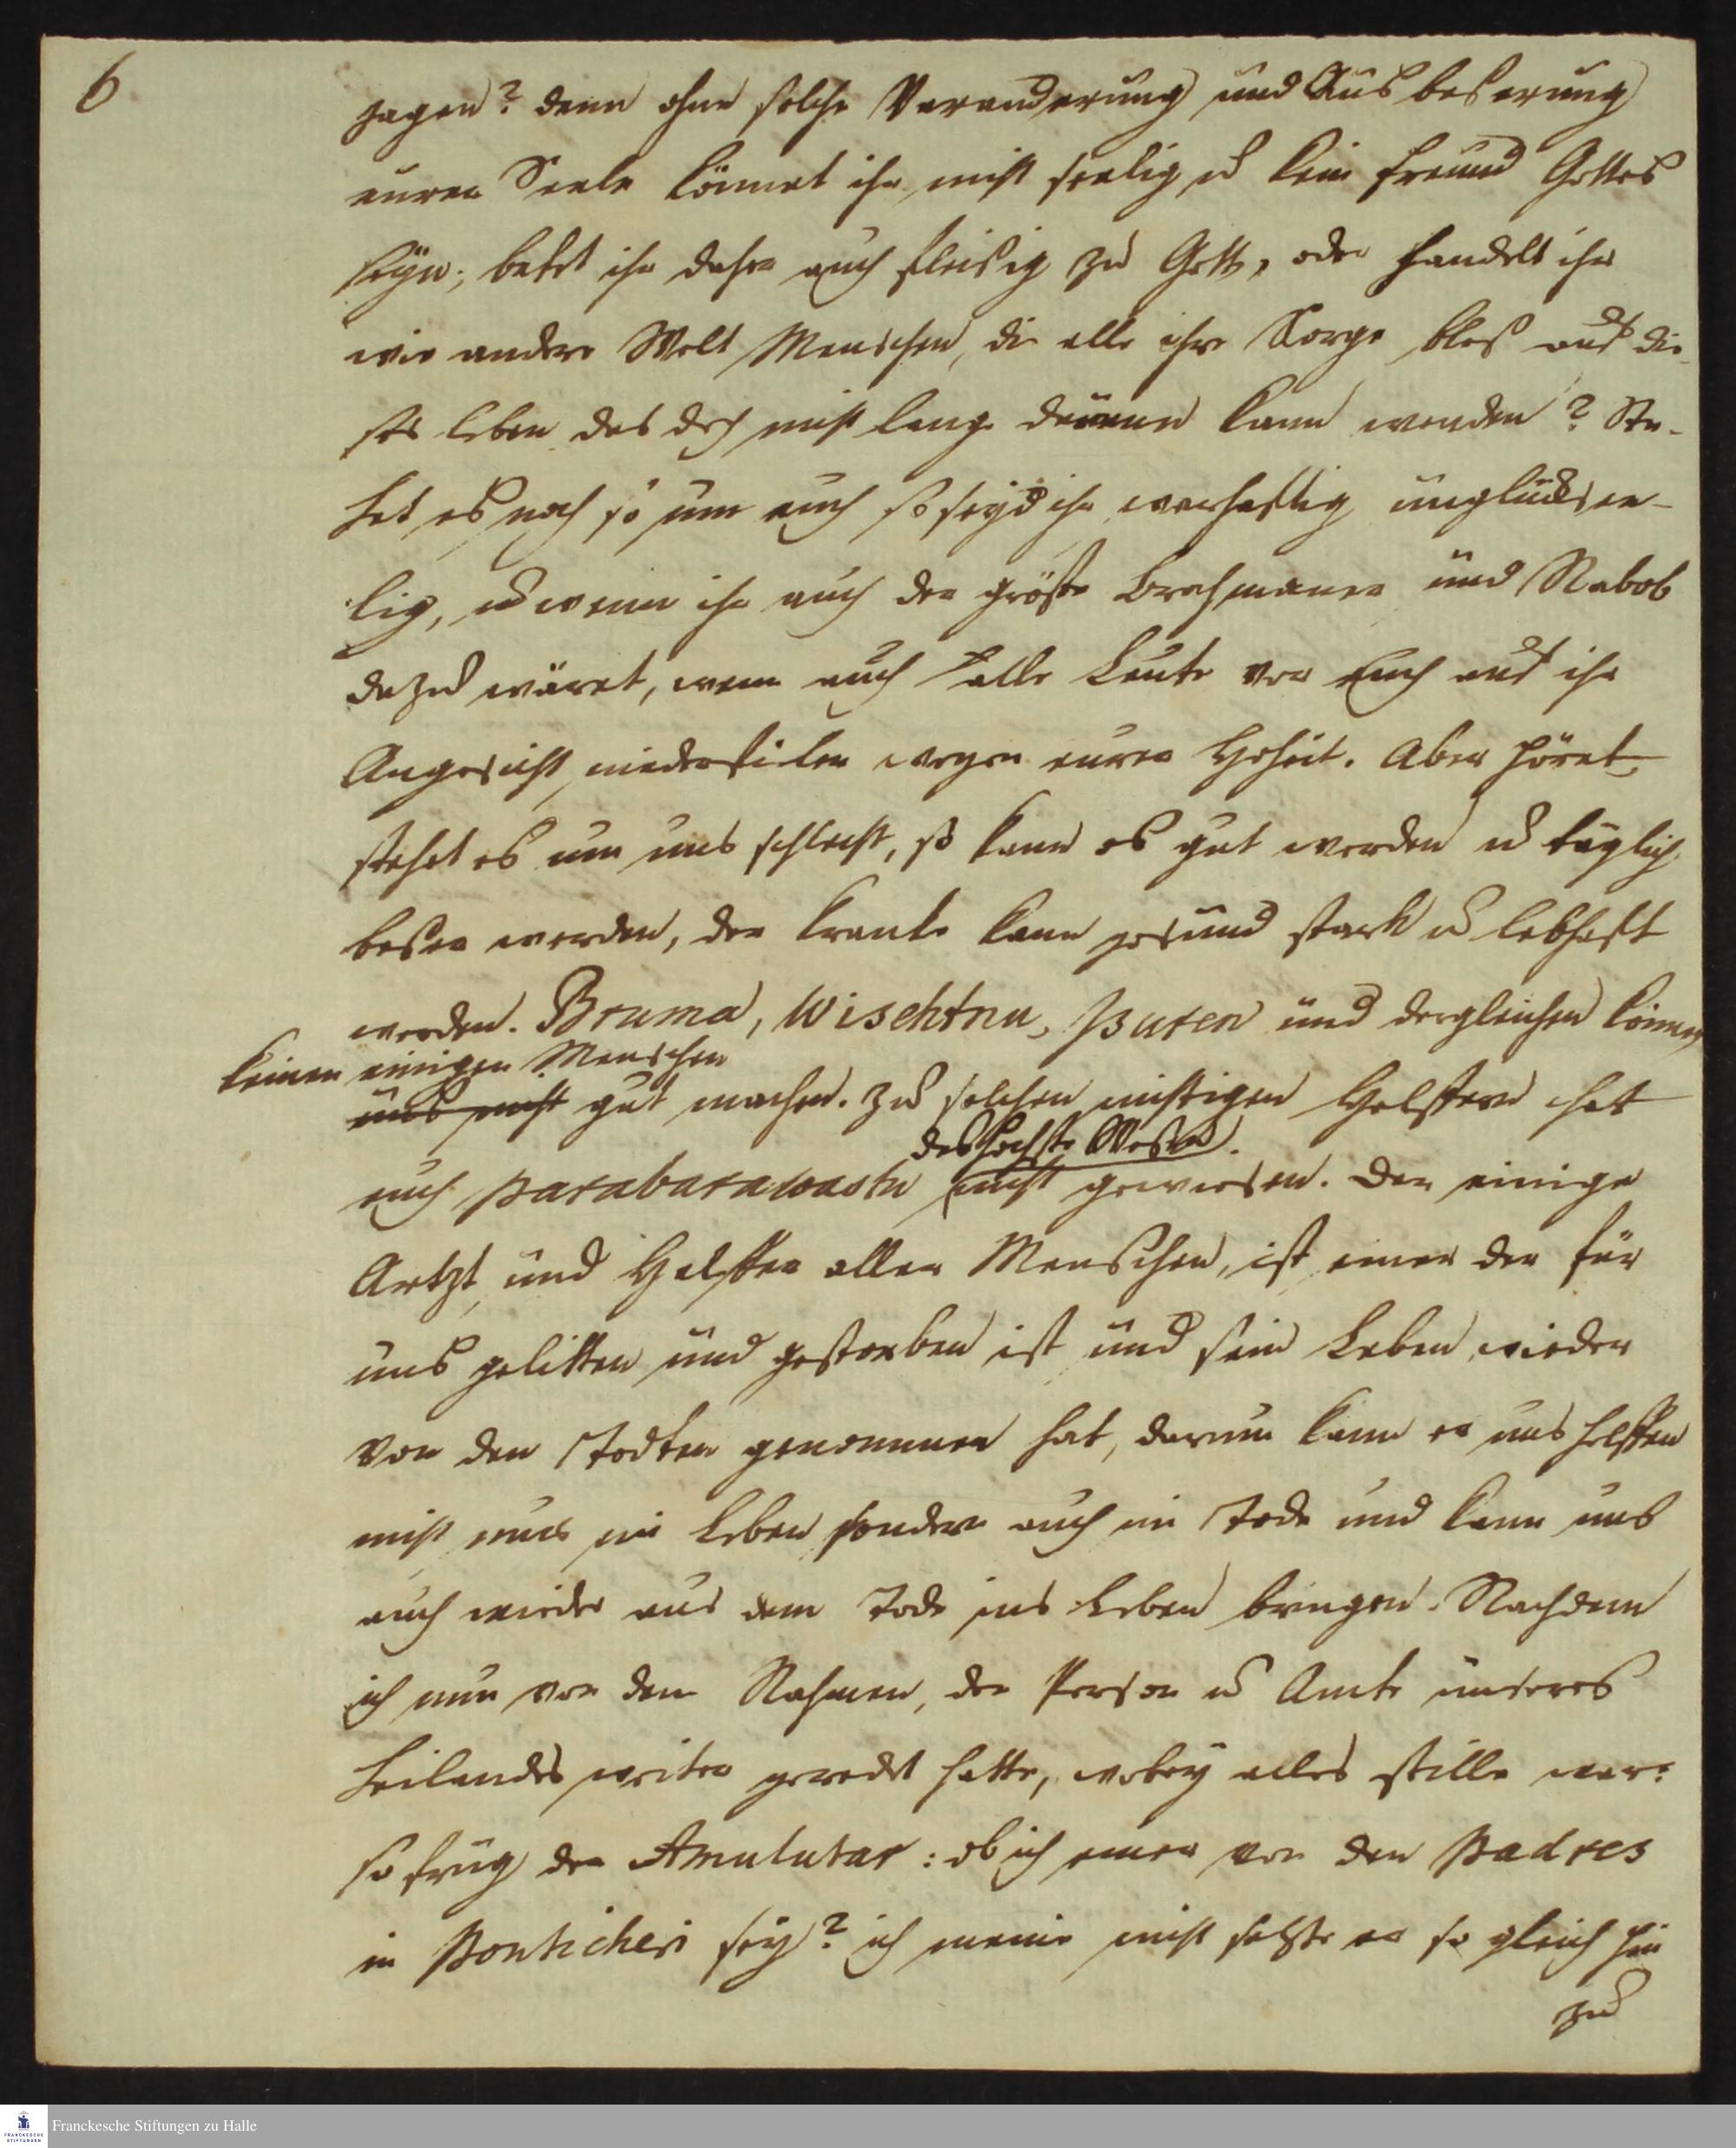 6
zagen? denn ohne solche Veranderung und Ausbeßerung
eurer Seele könnet ihr nicht seelig u kein Freund Gottes
seyn; betet ihr daher auch fleisig zu Gott, oder handelt ihr
wie andere Welt Menschen, die alle ihre Sorge blos auf die-
ses Leben das doch nicht lange dauren kann wenden? Ste-
het es noch so um euch so seyd ihr warhafftig unglücksee-
lig, u wenn ihr auch der gröste Brahmaner und Nabob
dazu wäret, wenn auch alle Leute vor Euch auf ihr
Angesicht niederfielen wegen eurer Hoheit. Aber höret,
stehet es um uns schlecht, so kann es gut werden u täglich
beßer werden, der Kranke kann gesund stark u lebhafft
werden. Bruma, Wischtnu, Isuren und dergleichen können
keinen einigen Menschen
uns nicht gut machen. Zu solchen nichtigen Helffern hat
das höchste Wesen.
euch Parabarawastu nicht gewiesen. Der einige
Artzt und Helffer aller Menschen, ist einer der für
uns gelitten und gestorben ist und sein Leben wieder
von den Todten genommen hat, darum kann er uns helffen
nicht nur im Leben sondern auch im Tode und kann uns
auch wieder aus dem Tode ins Leben bringen. Nachdem
ich nun von dem Nahmen, der Person u Amte unseres
Heilandes weiter geredet hatte, wobey alles stille war:
so frug der Amulutar: ob ich einer von den Padres
in Ponticheri sey? ich meine nicht sezte er so gleich hin
zu
Franckesche Stiftungen zu Halle
FRANCKESCHE
STIFTUNGEN